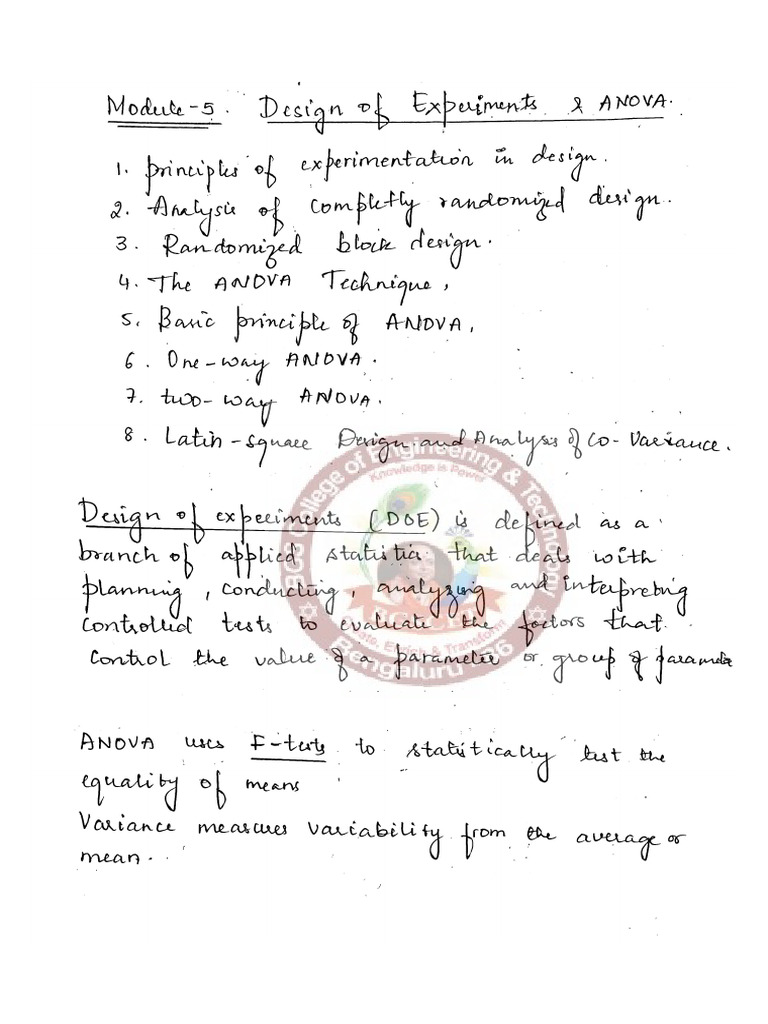 Module-5. Design of Experiments & ANOVA.
1. principles of experimentation in design.
2. Analysis of completly randomized design.
3. Randomized block design.
4. The ANOVA Technique,
5. Basic principle of ANOVA,
6. One-way ANOVA.
7. two-way ANOVA.
8. Latin-square Design and Analysis of Co-Variance.
Design of experiments (DOE) is defined as a
branch of applied statistics that deals with
planning, conducting, analyzing and interpreting
controlled tests to evaluate the factors that
control the value of a parameter or group of paramete
ANOVA uses F-tests to statistically test the
equality of means
Variance measures variability from the average or
mean.
College of Engineering & Technology
Knowledge is Power
Enrich & Transform
Bengaluru